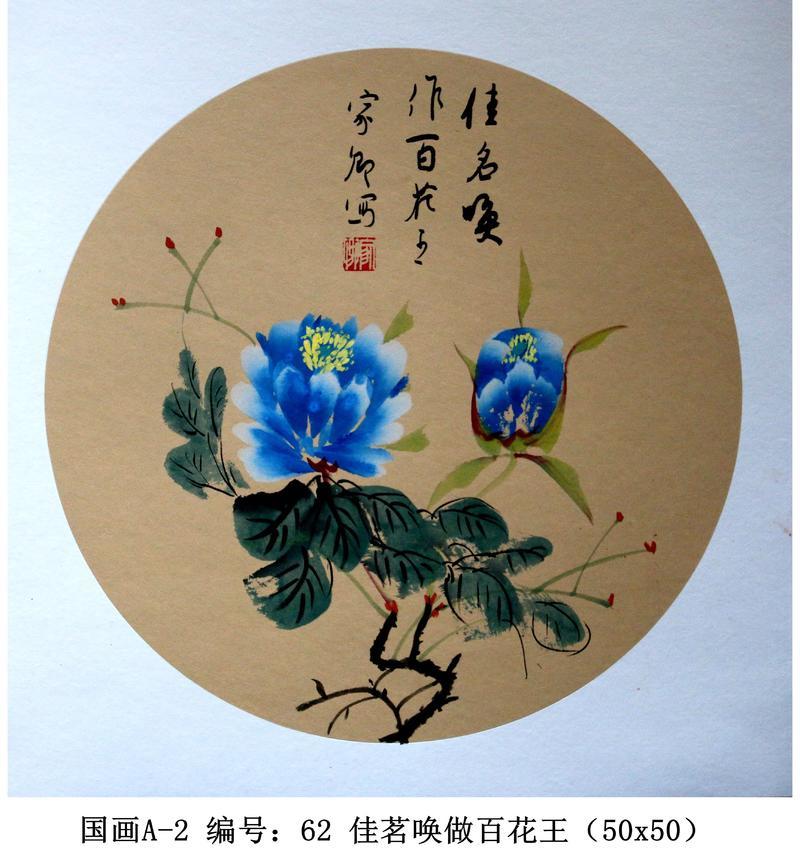 佳名唤
作百花王
家卿写
国画A-2 编号：62 佳茗唤做百花王（50x50）